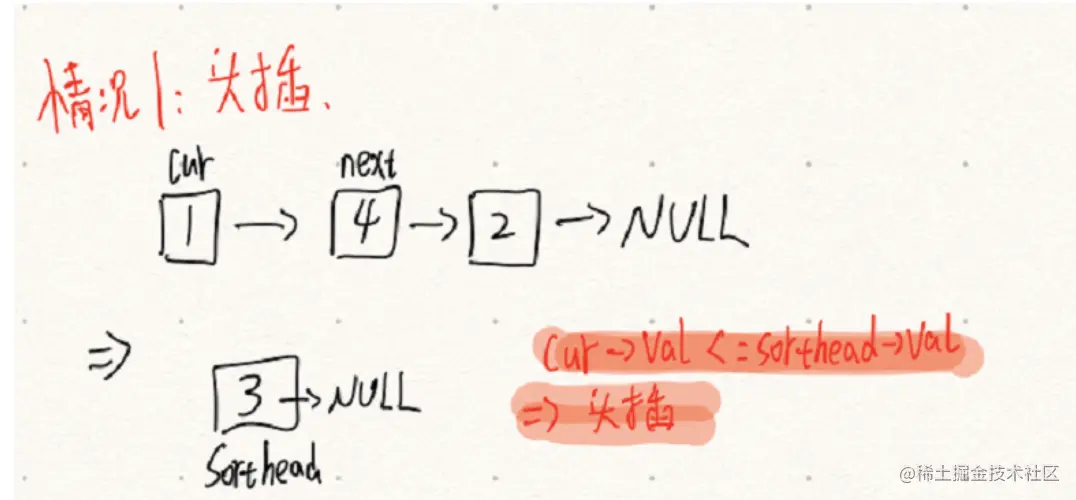 情况1：头插、
cur next
1 → 4 → 2 → NULL
⇒
cur→val <= sorthead→val
3 → NULL
⇒ 头插
Sorthead
@稀土掘金技术社区